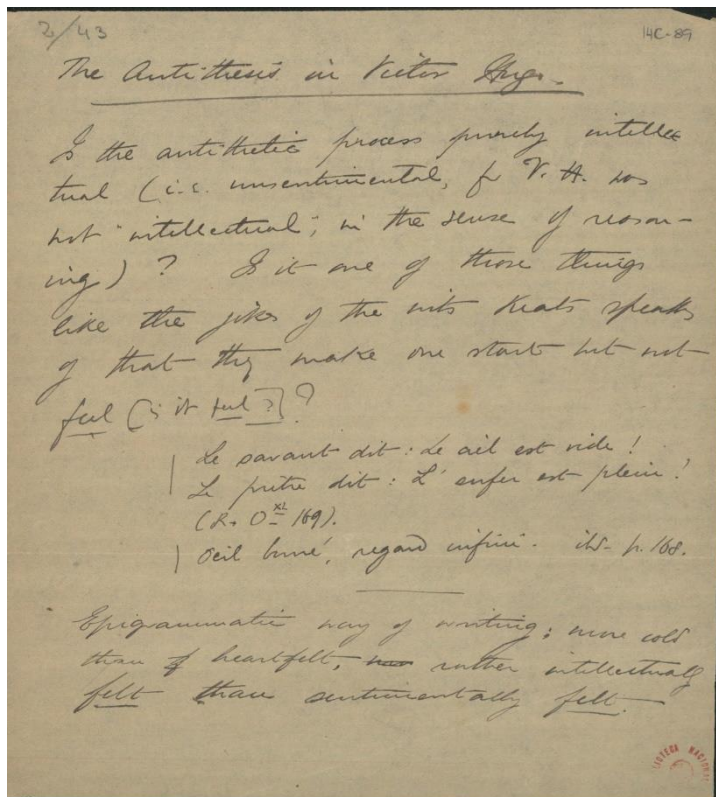 2/43
14C-89
The Antithesis in Victor Hugo.
Is the antithetic process purely intellec
tual (i.e. unsentimental, for V. H. was
not "intellectual", in the sense of reason-
ing) ? Is it one of those things
like the jokes of the wits Keats speaks
of that they make one start but not
feel [is it feel ?] ?
Le savant dit : Le ciel est vide !
Le prêtre dit : L'enfer est plein !
(R. O. XL 169).
Oeil borné, regard infini. ibd. p. 168.
Epigrammatic way of writing; more cold
than heartfelt, rather intellectually
felt than sentimentally felt.